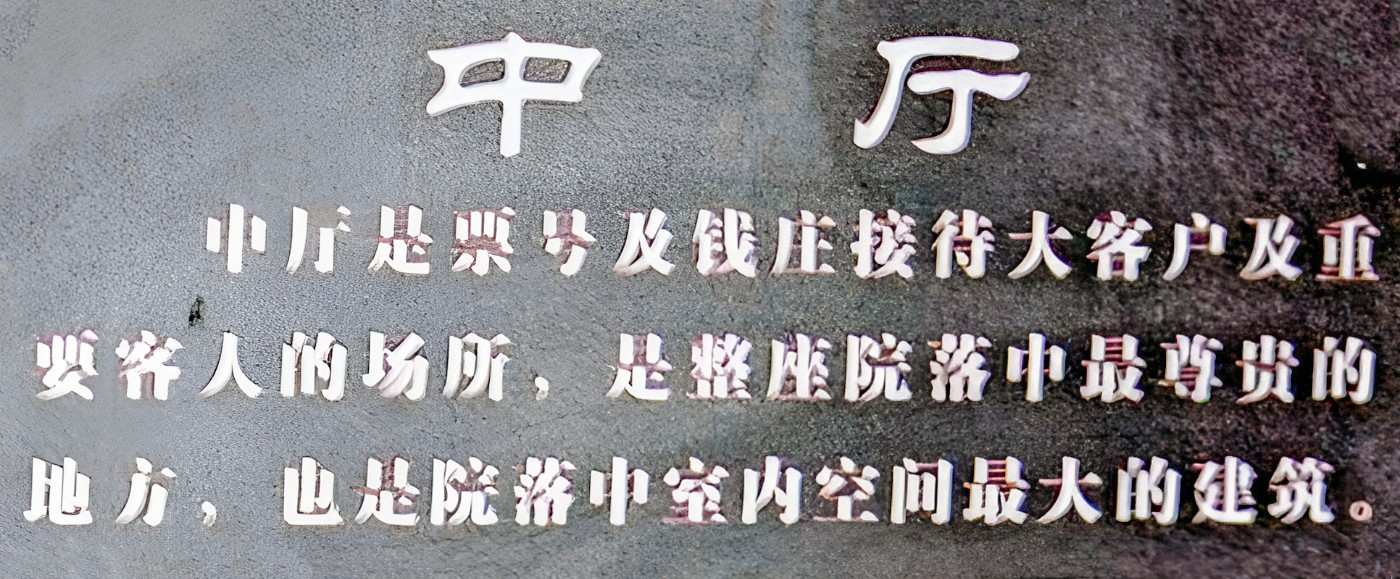 中厅
中厅是票号及钱庄接待大客户及重
要客人的场所，是整座院落中最尊贵的
地方，也是院落中室内空间最大的建筑。